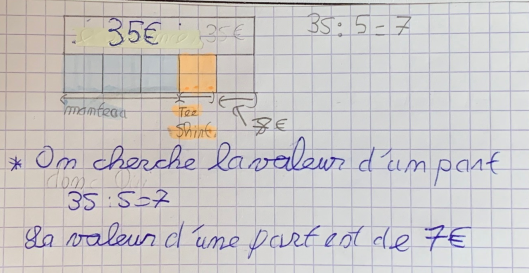 35€ 35€ 35 : 5 = 7
manteau Tee
Shirt
8€
* On cherche la valeur d'un part
35 : 5 = 7
La valeur d'une part est de 7€